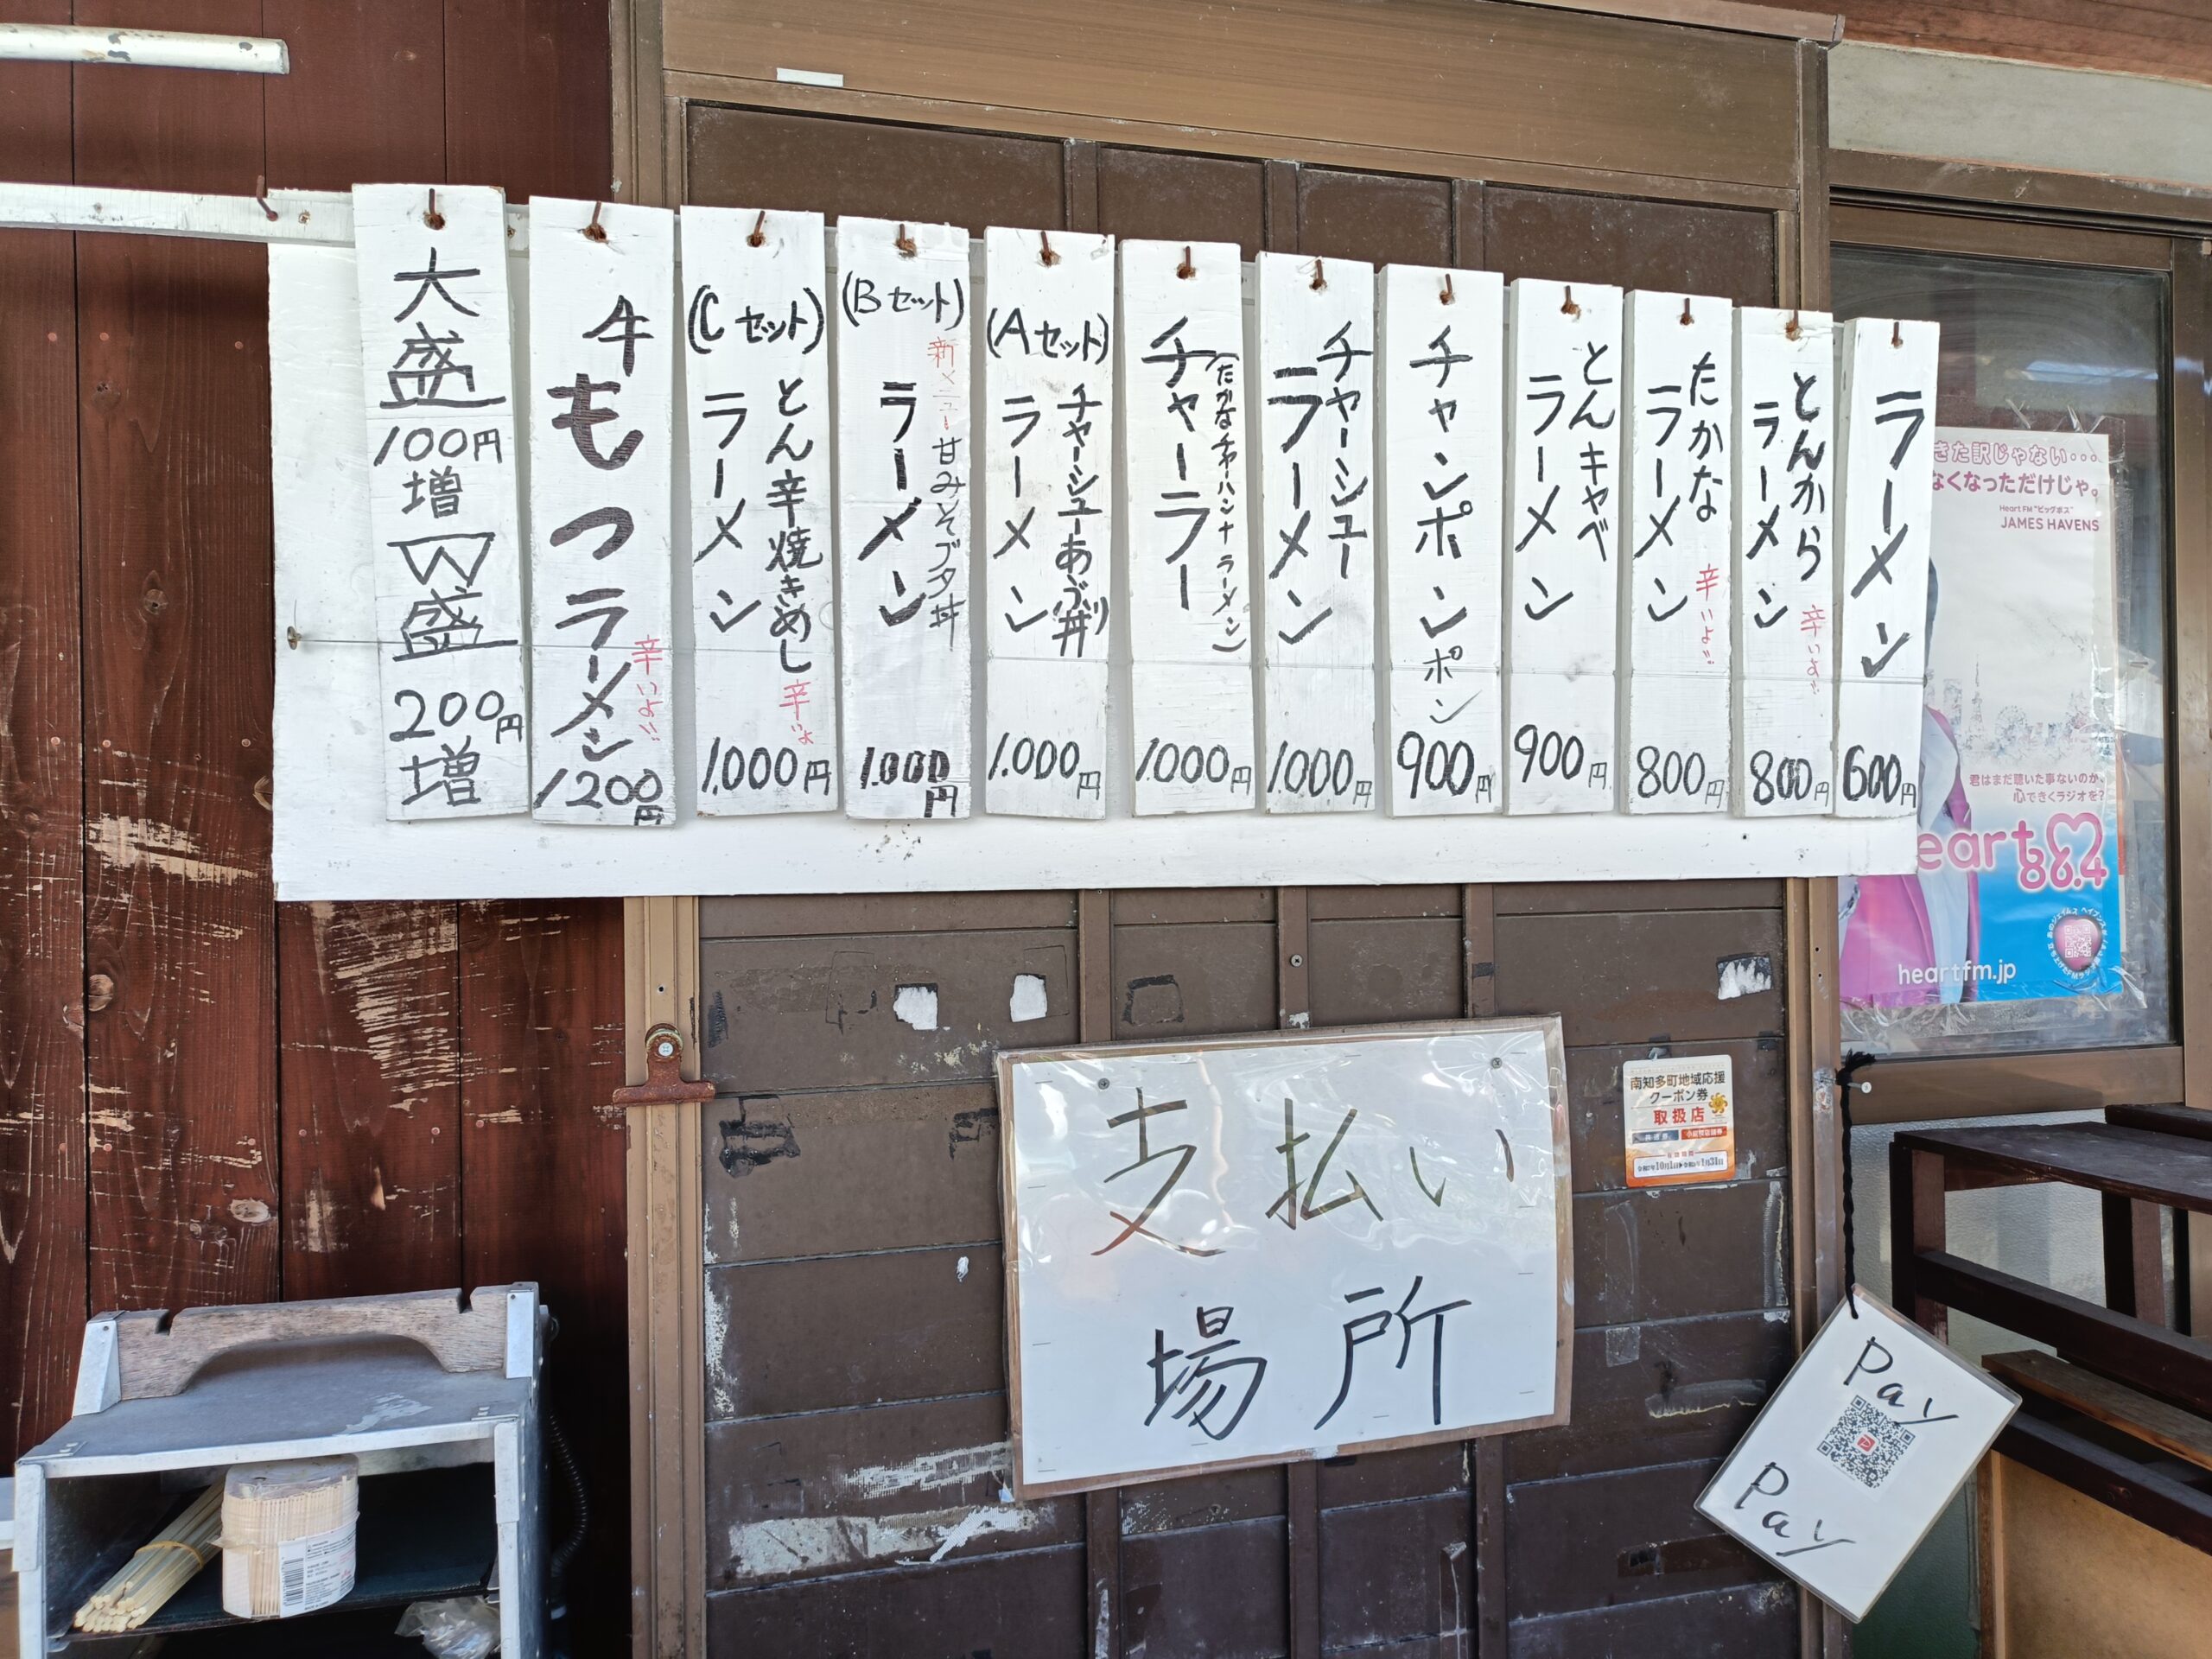 ラーメン
600円
とんから
ラーメン
辛いよ!!
800円
たかな
ラーメン
辛いよ!!
800円
とんキャベ
ラーメン
900円
チャンポンポン
900円
チャーシュー
ラーメン
1.000円
チャーラー
(たかなチャーハンナラーメン)
1.000円
(Aセット)
チャーシューあぶり丼
ラーメン
1.000円
(Bセット)
新メニュー
甘みそブタ丼
ラーメン
1.000円
(Cセット)
とん辛焼きめし
辛いよ
ラーメン
1.000円
牛もつラーメン
辛いよ!!
1200円
大盛
100円
増
W盛
200円
増
きた訳じゃない・・・
なくなっただけじゃ。
Heart FM "ビッグボス"
JAMES HAVENS
君はまだ聴いた事ないのか。
心できくラジオを?
eart
86.4
heartfm.jp
南知多町地域応援
クーポン券
取扱店
支払い
場所
Pay
Pay